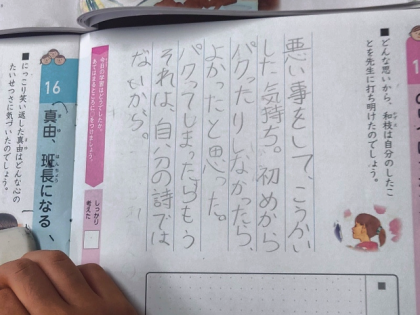 ■どんな思いから、和枝は自分のしたこ
とを先生に打ち明けたのでしょう。
悪い事をして、こうかい
した気持ち。初めから
パクったりしなかったら、
よかったと思った。
パクってしまったらもう
それは、自分の詩では
ないから。
今日の学習はどうでしたか。
あてはまるところに○をつけましょう。
しっかり
考えた
16
真由、班長になる
まゆ
はんちょう
■にっこり笑い返した真由はどんな心の
たいせつさに気づいたのでしょう。